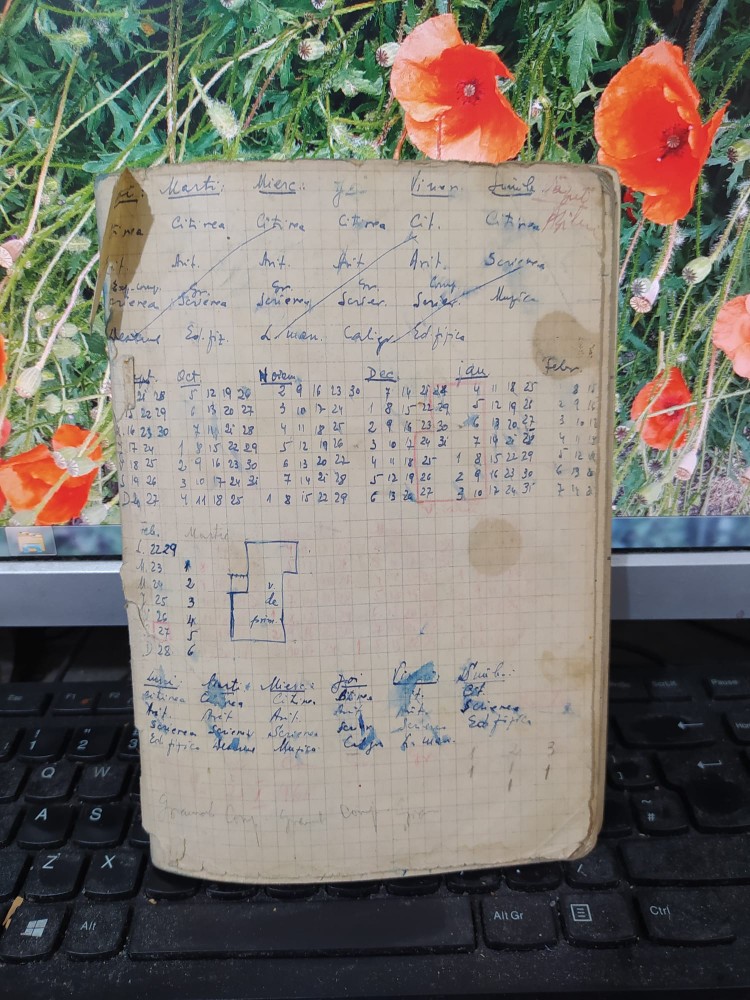 Marti: Mierc: Vineri Sâmb.
Citirea Citirea Citirea Cit. Citirea
Arit. Arit. Arit. Arit. Scrierea
Gr. Gr. Comp.
Scrierea Scrierea Scrierea Scrier. Scrier. Muzica
Desemn Ed. fiz. L. man. Caligr. Ed. fizica
Oct. Noiem. Dec. ian. Febr.
21 28 5 12 19 26 2 9 16 23 30 7 14 21 28 4 11 18 25 1 8 15
15 22 29 6 13 20 27 3 10 17 24 1 8 15 22 29 5 12 19 26 2 9 16
16 23 30 7 14 21 28 4 11 18 25 2 9 16 23 30 6 13 20 27 3 10 17
17 24 1 8 15 22 29 5 12 19 26 3 10 17 24 31 7 14 21 28 4 11 18
18 25 2 9 16 23 30 6 13 20 27 4 11 18 25 1 8 15 22 29 5 12 19
19 26 3 10 17 24 31 7 14 21 28 5 12 19 26 2 9 16 23 30 6 13 20
27 4 11 18 25 1 8 15 22 29 6 13 20 27 3 10 17 24 31 7 14
Feb. Martie
L. 22 29
M. 23 1
M. 24 2
J. 25 3
26 4
27 5
D. 28 6
v
de
Luni: Marti: Mierc: Joi Sâmb:
Citirea Citirea Citirea Citirea Cit.
Arit. Arit. Arit. Arit. Arit. Scrierea
Scrierea Scrierea Scrierea Scrier Scrierea Ed. fizica
Ed. fizica Desemn Muzica Caligr L. man.
1 2 3
1 1 1
1 1
Gramat Comp Gramt Comp